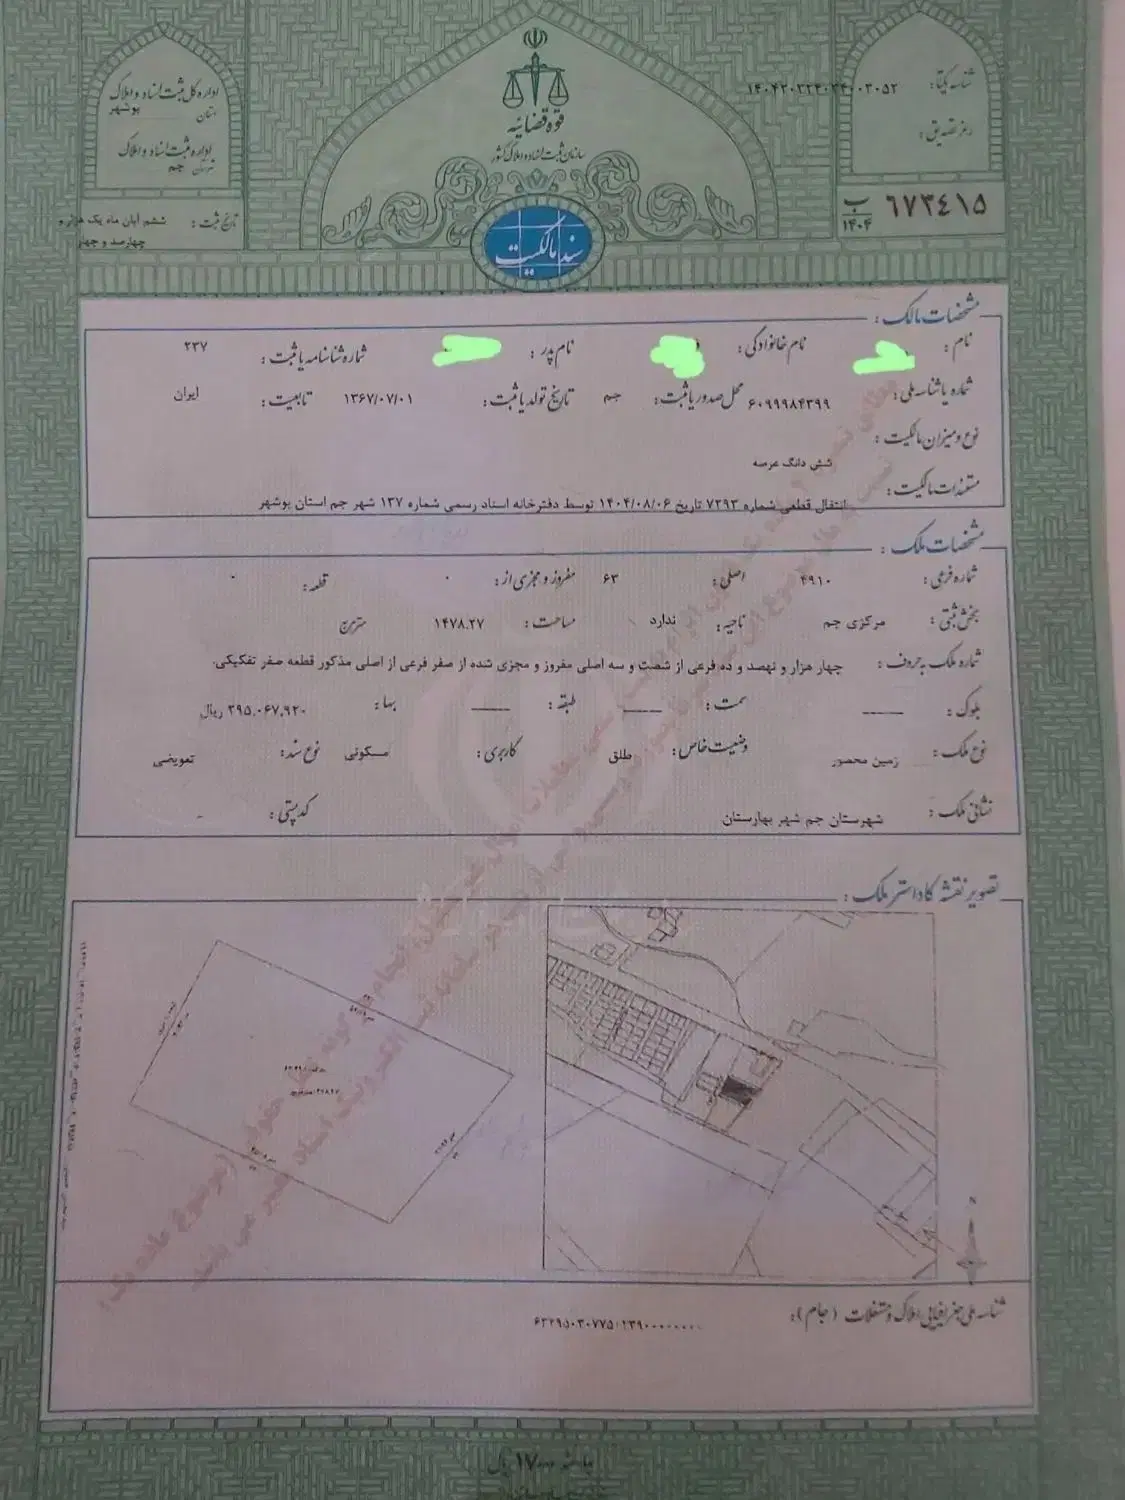 قوه قضائیه
سازمان ثبت اسناد و املاک کشور
سند مالکیت
شناسه یکتا:
رمز تصدیق:
۶۷۳۴۱۵ ب ۱۴۰۴
اداره کل ثبت اسناد و املاک
استان بوشهر
اداره ثبت اسناد و املاک
شهرستان جم
تاریخ ثبت: ششم آبان ماه یک هزار و
چهارصد و چهار
مشخصات مالک:
نام: نام خانوادگی: نام پدر: شماره شناسنامه یا ثبت: ۲۳۷
شماره یا شناسه ملی: ۶۰۹۹۹۸۴۳۹۹ محل صدور یا ثبت: جم تاریخ تولد یا ثبت: ۱۳۶۷/۰۷/۰۱ تابعیت: ایران
نوع و میزان مالکیت:
شش دانگ عرصه
مستندات مالکیت:
انتقال قطعی شماره ۷۲۹۳ تاریخ ۱۴۰۴/۰۸/۰۶ توسط دفترخانه اسناد رسمی شماره ۱۳۷ شهر جم استان بوشهر
مشخصات ملک:
شماره فرعی: ۴۹۱۰ اصلی: ۶۳ مفروز و مجزی از: ۰ قطعه: ۰
بخش ثبتی: مرکزی جم ناحیه: ندارد مساحت: ۱۴۷۸.۲۷ مترمربع
شماره ملک به حروف: چهار هزار و نهصد و ده فرعی از شصت و سه اصلی مفروز و مجزی شده از صفر فرعی از اصلی مذکور قطعه صفر تفکیکی.
بلوک: سمت: طبقه: بها: ۲۹۵,۰۶۷,۹۲۰ ریال
نوع ملک: زمین محصور وضعیت خاص: طلق کاربری: مسکونی نوع سند: تعویضی
نشانی ملک: شهرستان جم شهر بهارستان کد پستی: -
تصویر نقشه کاداستر ملک:
N
شناسه ملی جغرافیایی املاک و مستغلات (جام):